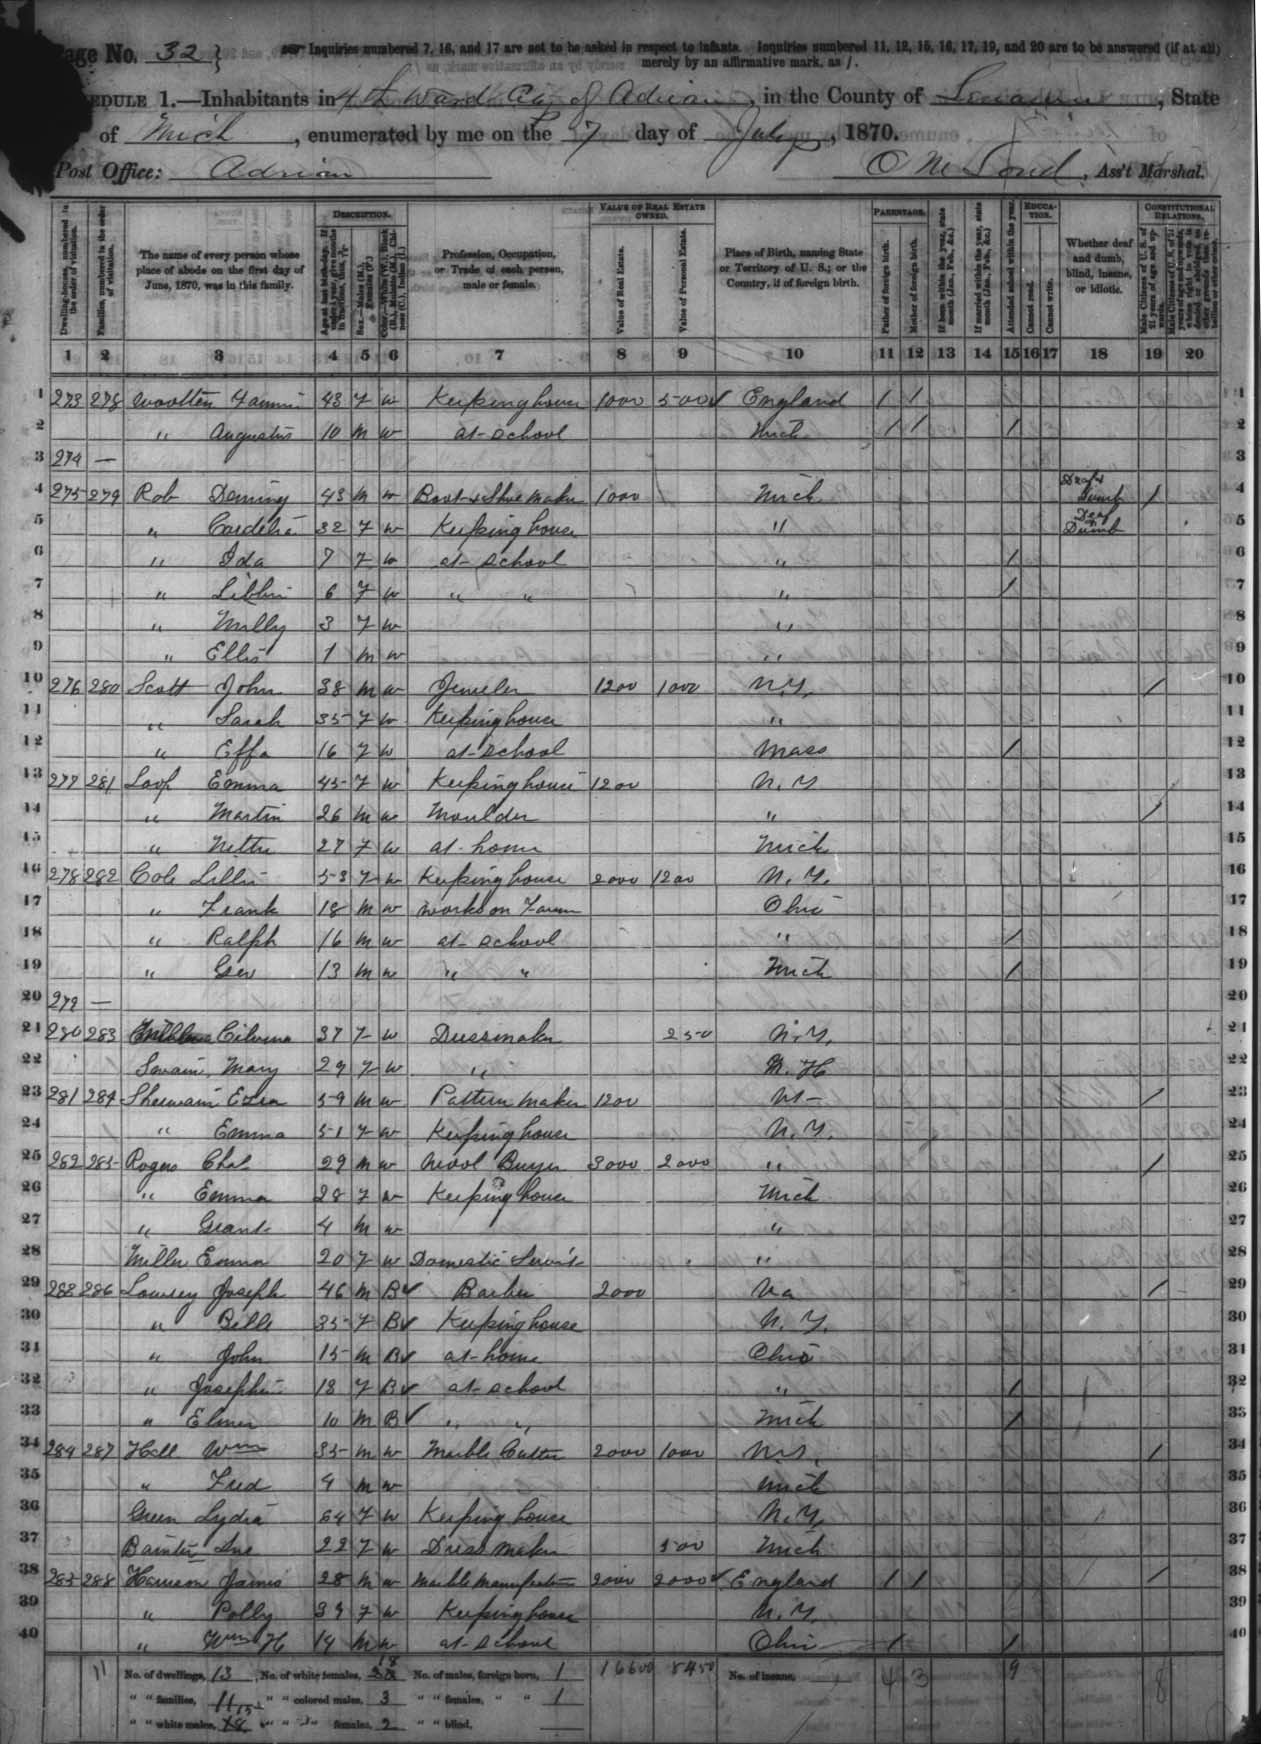 Page No. 32 } Inquiries numbered 7, 16, and 17 are not to be asked in respect to infants. Inquiries numbered 11, 12, 15, 16, 17, 19, and 20 are to be answered (if at all)
merely by an affirmative mark, as /.
EDULE 1.—Inhabitants in 4th Ward City of Adrian, in the County of Lenawee, State
of Mich, enumerated by me on the 7 day of July, 1870.
Post Office: Adrian
Ass't Marshal.
DESCRIPTION. VALUE OF REAL ESTATE OWNED. PARENTAGE. EDUCATION. CONSTITUTIONAL RELATIONS.
Dwelling-houses, numbered in the order of visitation. Families, numbered in the order of visitation. The name of every person whose place of abode on the first day of June, 1870, was in this family. Profession, Occupation, or Trade of each person, male or female. Value of Real Estate. Value of Personal Estate. Place of Birth, naming State or Territory of U. S.; or the Country, if of foreign birth. Father of foreign birth. Mother of foreign birth. Attended school within the year. Cannot read. Cannot write. Whether deaf and dumb, blind, insane, or idiotic.
1 2 3 4 5 6 7 8 9 10 11 12 13 14 15 16 17 18 19 20
1 273 278 Wootten 43 F W Keeping house 1000 500 ✓ England / / 1
2 " Augustus 10 M W at-school Mich / / / 2
3 274 — 3
4 275 279 Rob Deming 43 M W Boot & Shoe Maker 1000 Mich Deaf & Dumb / 4
5 " Cordelia 32 F W Keeping house " Deaf Dumb 5
6 " Ida 7 F W at-school " / 6
7 " Libbie 6 F W " " " / 7
8 " Milly 3 F W " 8
9 " Ellis 1 M W " 9
10 276 280 Scott John 38 M W Jeweler 1200 1000 N.Y. / 10
11 " Sarah 35 F W Keeping house " 11
12 " Effa 16 F W at-school Mass / 12
13 277 281 Loop Emma 45 F W Keeping house 1200 N.Y 13
14 " Martin 26 M W Moulder " / 14
15 " Nettie 27 F W at-home Mich 15
16 278 282 Cole Lillie 53 F W Keeping house 2000 1200 N.Y. 16
17 " Frank 18 M W works on Farm Ohio 17
18 " Ralph 16 M W at-school " / 18
19 " Geo 13 M W " " Mich / 19
20 279 — 20
21 280 283 37 F W Dressmaker 250 N.Y. 21
22 Swain, Mary 29 F W " N.H 22
23 281 284 Ezra 59 M W Pattern Maker 1200 Vt- / 23
24 " Emma 51 F W Keeping house N.Y. 24
25 282 285 Rogers Chas 29 M W Wool Buyer 3000 2000 " / 25
26 " Emma 28 F W Keeping house Mich 26
27 " Grant 4 M W " 27
28 Miller Emma 20 F W Domestic Serv't " 28
29 283 286 Joseph 46 M B ✓ Barber 2000 Va / 29
30 " Belle 35 F B ✓ Keeping house N.Y. 30
31 " John 15 M B ✓ at-home Ohio 31
32 " Josephine 13 F B ✓ at-school " / 32
33 " Elmer 10 M B ✓ " " Mich / 33
34 284 287 Hall Wm 35 M W Marble Cutter 2000 1000 N.Y. / 34
35 " Fred 4 M W Mich 35
36 Green Lydia 64 F W Keeping house N.Y. 36
37 22 F W Dress Maker 500 Mich 37
38 285 288 Harrison James 28 M W Marble Manufacturer 2000 2000 ✓ England / / / 38
39 " Polly 39 F W Keeping house N.Y. 39
40 " Wm H 14 M W at-school Ohio / / 40
11 No. of dwellings, 13 No. of white females, 18 No. of males, foreign born, 1 16600 8450 No. of insane, 4 3 9 8
" " families, 11 " " colored males, 3 " " females, " " 1
" " white males, 18 " " " females, 2 " " blind,